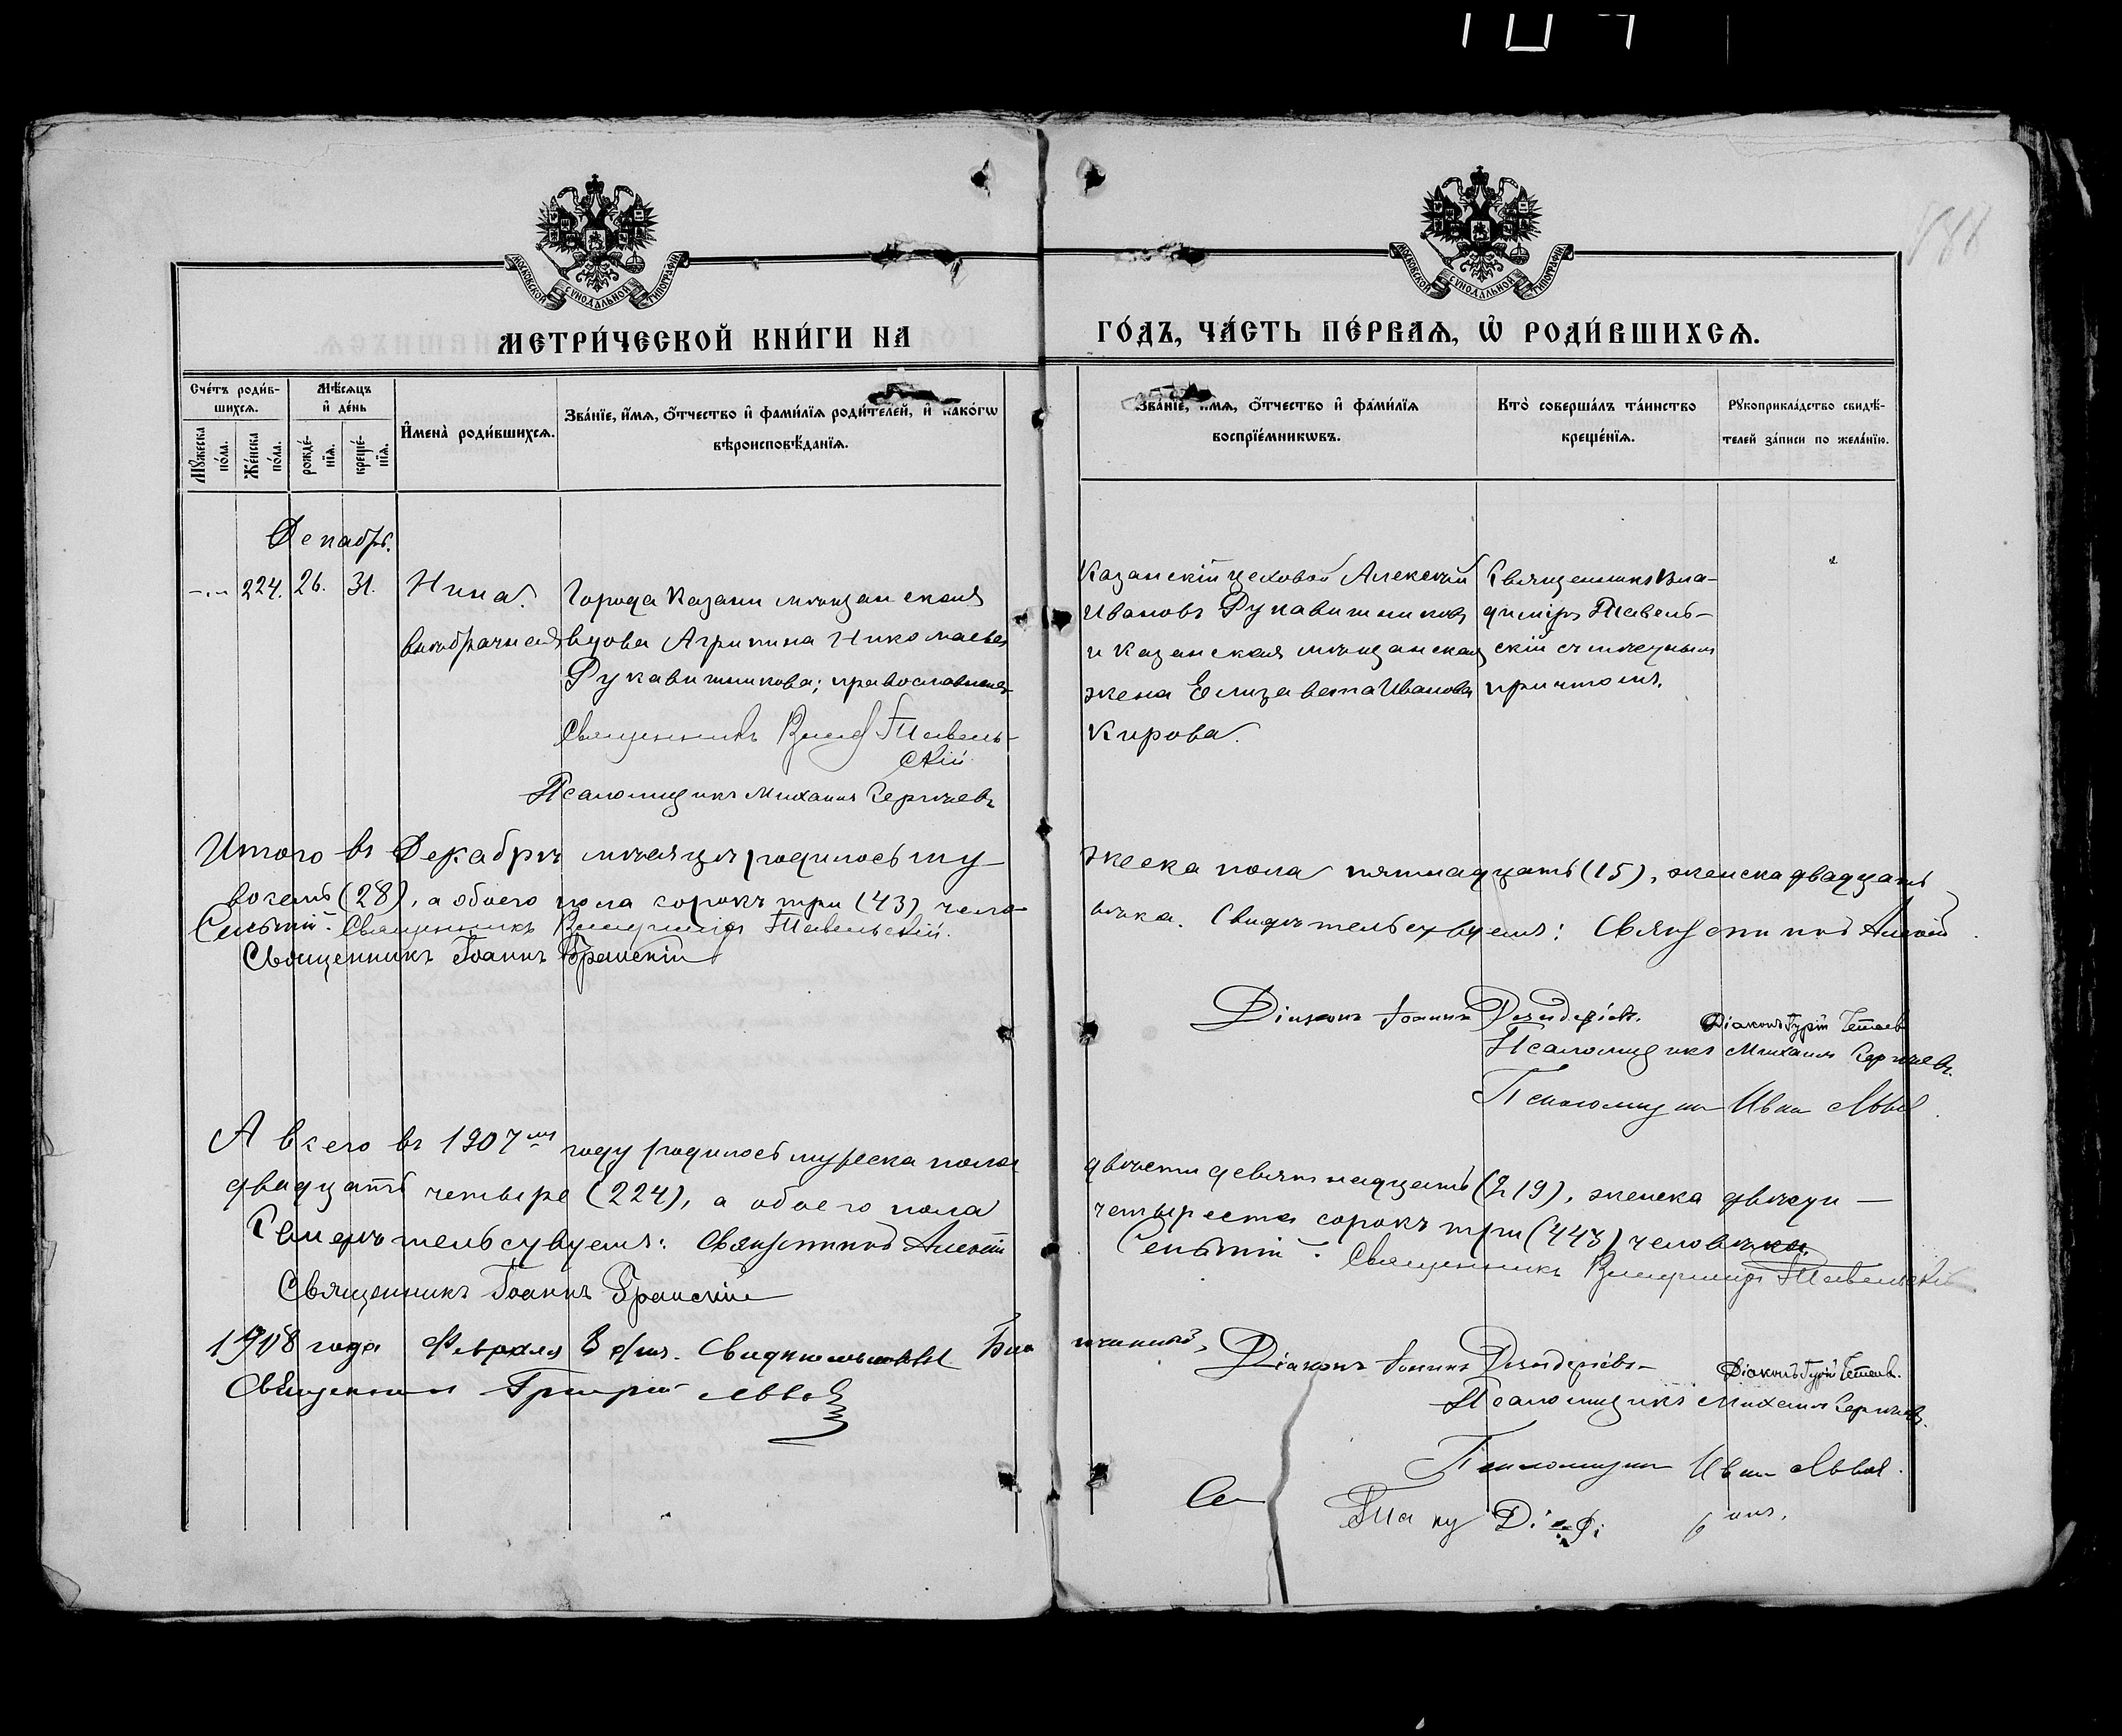 МОСКОВСКОЙ СѴНОДАЛЬНОЙ ТИПОГРАФІИ
МОСКОВСКОЙ СѴНОДАЛЬНОЙ ТИПОГРАФІИ
МЕТРИ́ЧЕСКОЙ КНИ́ГИ НА
ГО́ДЪ, ЧА́СТЬ ПЕ́РВАѦ, Ѡ҆ РОДИ́ВШИХСѦ.
Сче́тъ роди́в-
шихсѧ.
Мѣ́сѧцъ
и҆ де́нь
Мꙋ́жеска
по́ла.
Же́нска
по́ла.
рожде́-
нїѧ.
креще́-
нїѧ.
И҆мена̀ роди́вшихсѧ.
Зва́нїе, и҆́мѧ, ѻ҆́тчество и҆ фами́лїѧ роди́телей, и҆ како́гѡ
вѣроисповѣ́данїѧ.
Зва́нїе, и҆́мѧ, ѻ҆́тчество и҆ фами́лїѧ
воспрїе́мникѡвъ.
Кто̀ соверша́лъ та́инство
креще́нїѧ.
Рꙋкоприкла́дство свидѣ́-
телей за́писи по жела́нїю.
Декабрь.
224. 26. 31. Нина.
внѣбрачная
Города Казани мѣщанская
вдова Агрипина Николаева
Рукавишникова; православная
Священникъ Влад Тавель-
скій
Псаломщикъ Михаилъ Сергѣевъ
Казанскій цеховой Алексѣй
Ивановъ Рукавишниковъ
и Казанская мѣщанская
жена Елизавета Иванова
Кирова.
Священникъ Вла-
диміръ Тавель-
скій съ мѣстнымъ
причтомъ.
Итого въ Декабрѣ мѣсяцѣ родилось му-
жеска пола пятнадцать (15), женска двадцать
восемь (28), а обоего пола сорокъ три (43) чело-
вѣка. Свидѣтельствуемъ: Священникъ Алексій
Сельскій. Священникъ Владиміръ Тавельскій.
Священникъ Іоаннъ Бранскій
Діаконъ Іоаннъ Діаконъ Гурій
Псаломщикъ Михаилъ Сергѣевъ.
Псаломщикъ Иван Львов.
А всего въ 1907мъ году родилось мужеска пола
двѣсти девятнадцать (219), женска двѣсти
двадцать четыре (224), а обоего пола
четыреста сорокъ три (443) человѣка.
Свидѣтельствуемъ: Священникъ Алексій
Священникъ Владиміръ Тавельскій
Священникъ Іоаннъ Бранскій
1908 года Февраля 8 дня. Благочинный,
Священникъ Григорій Львов
Діаконъ Іоаннъ Діаконъ Гурій
Псаломщикъ Михаилъ Сергѣевъ.
Псаломщикъ Иван Львов.